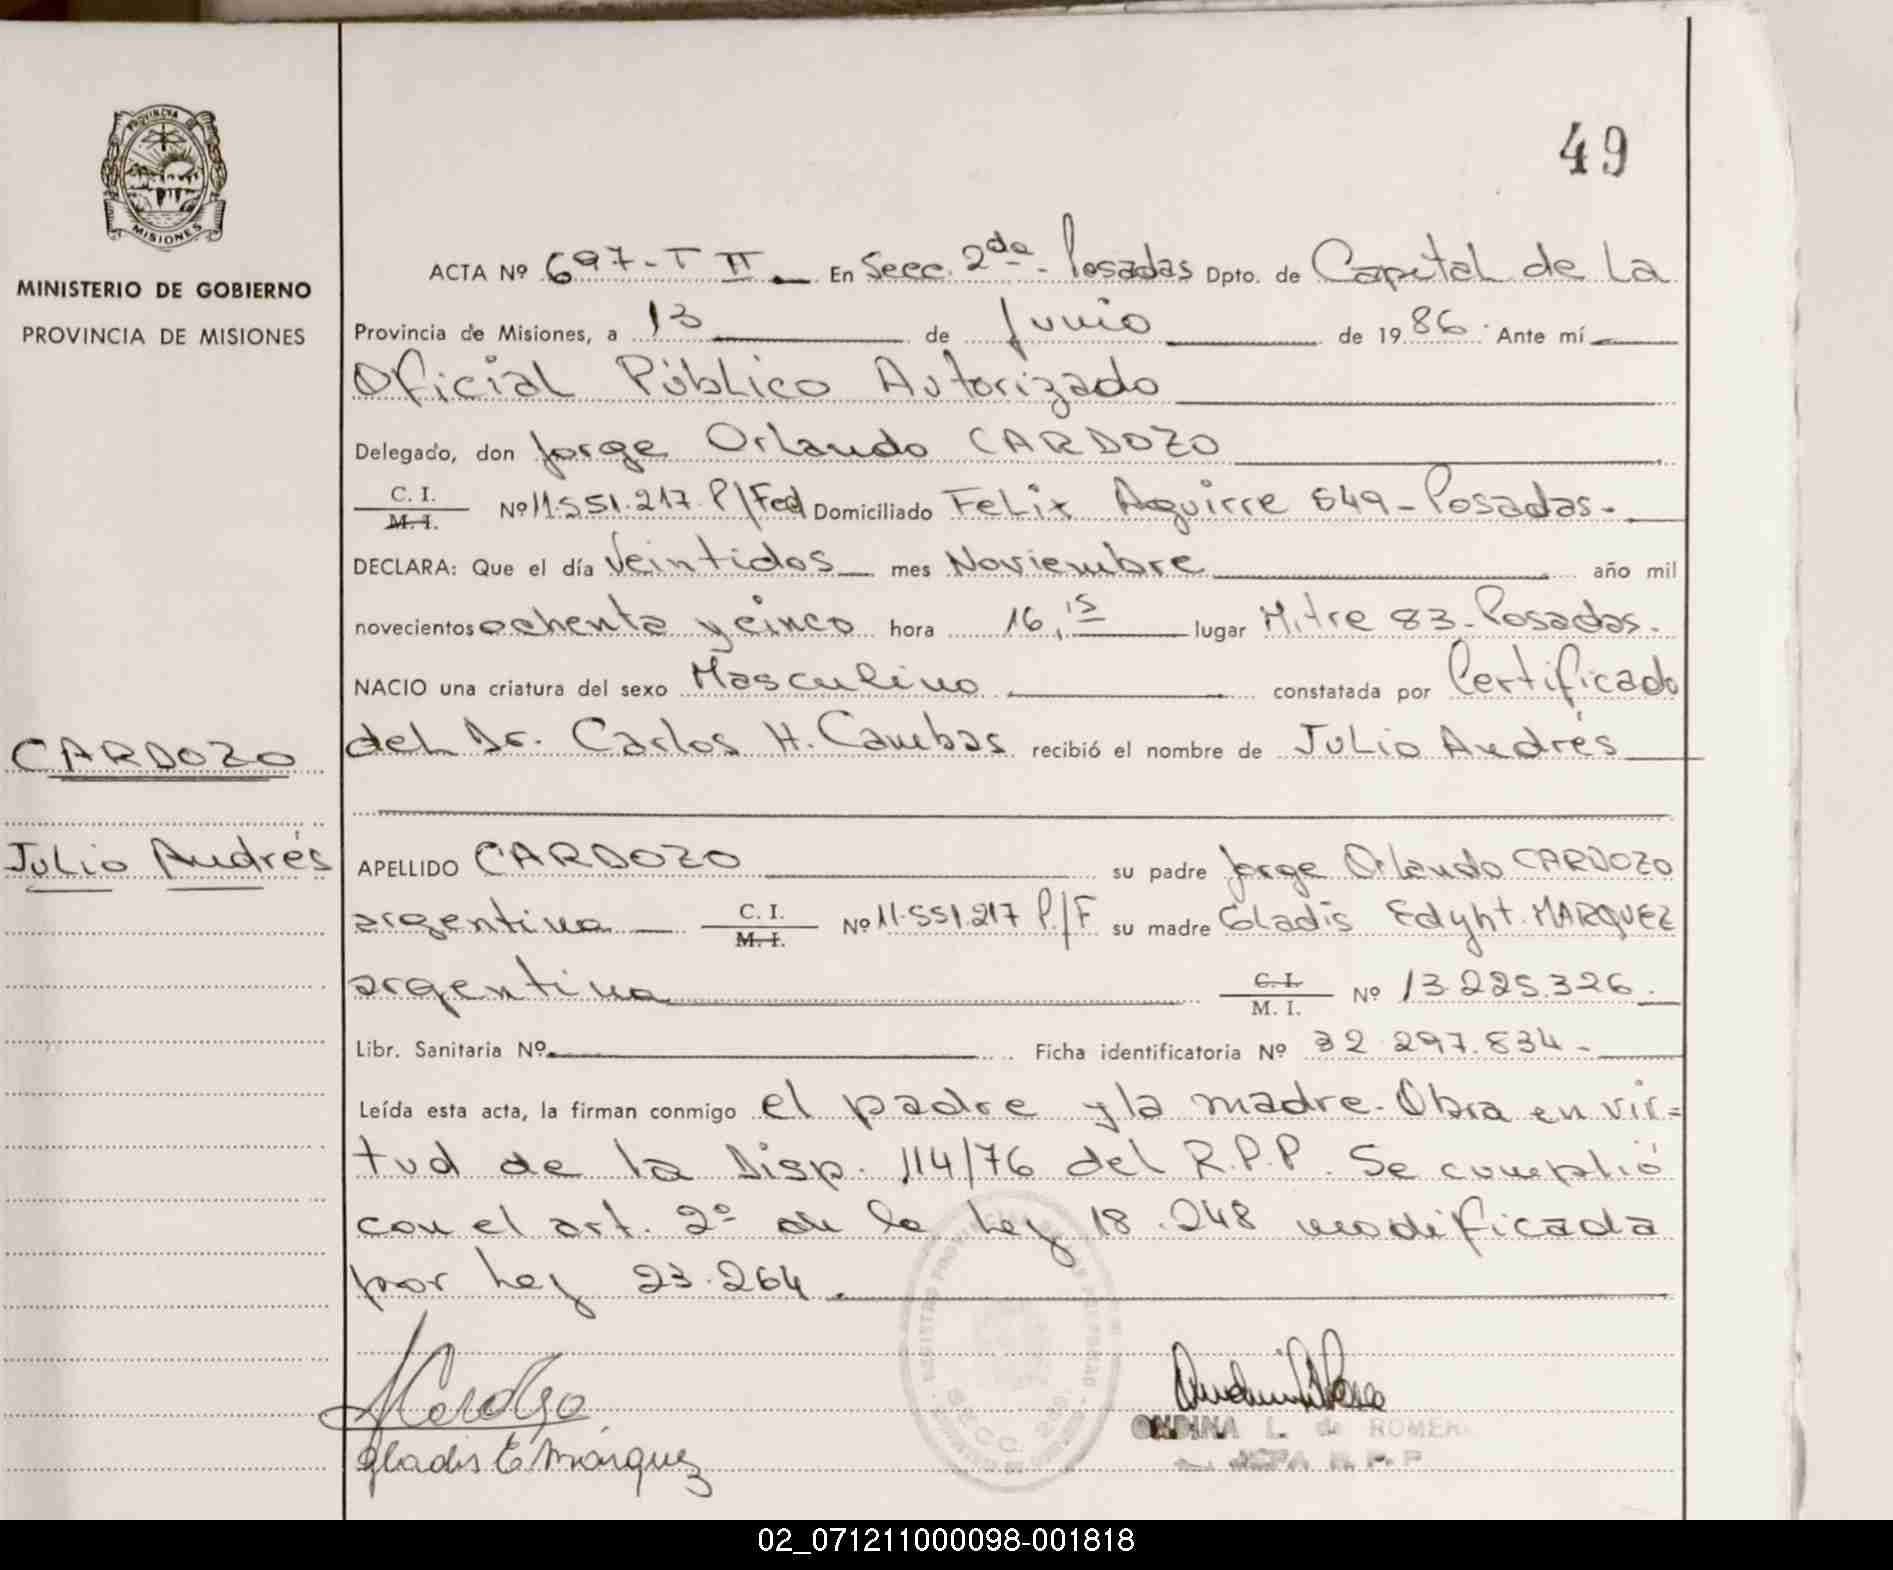 49
PROVINCIA DE
MISIONES
MINISTERIO DE GOBIERNO
PROVINCIA DE MISIONES
ACTA Nº 697-T II En Secc. 2da - Posadas Dpto. de Capital de La
Provincia de Misiones, a 13 de Junio de 1986. Ante mí
Oficial Público Autorizado
Delegado, don Jorge Orlando CARDOZO
C. I.
M. I.
Nº 11.551.217 P/Fed Domiciliado Felix Aguirre 649-Posadas.
DECLARA: Que el día Veintidos mes Noviembre año mil
novecientos ochenta y cinco hora 16,15 lugar Mitre 83-Posadas.
NACIO una criatura del sexo Masculino constatada por Certificado
del Dr. Carlos H. Cambas recibió el nombre de Julio Andrés
CARDOZO
Julio Andrés
APELLIDO CARDOZO su padre Jorge Orlando CARDOZO
argentino C. I.
M. I.
Nº 11.551.217 P/F su madre Gladis Edyht MARQUEZ
argentina C. I.
M. I.
Nº 13.225.326.
Libr. Sanitaria Nº Ficha identificatoria Nº 32.297.834-
Leída esta acta, la firman conmigo el padre y la madre. Obra en vir=
tud de la Disp. 114/76 del R.P.P. Se cumplió
con el art. 2º de la Ley 18.248 modificada
por Ley 23.264.
REGISTRO PROVINCIAL DE LAS PERSONAS
SECC. 2da.
Gladis E Márquez
ONDINA L. de ROMERO
JEFA R. P. P
02_071211000098-001818